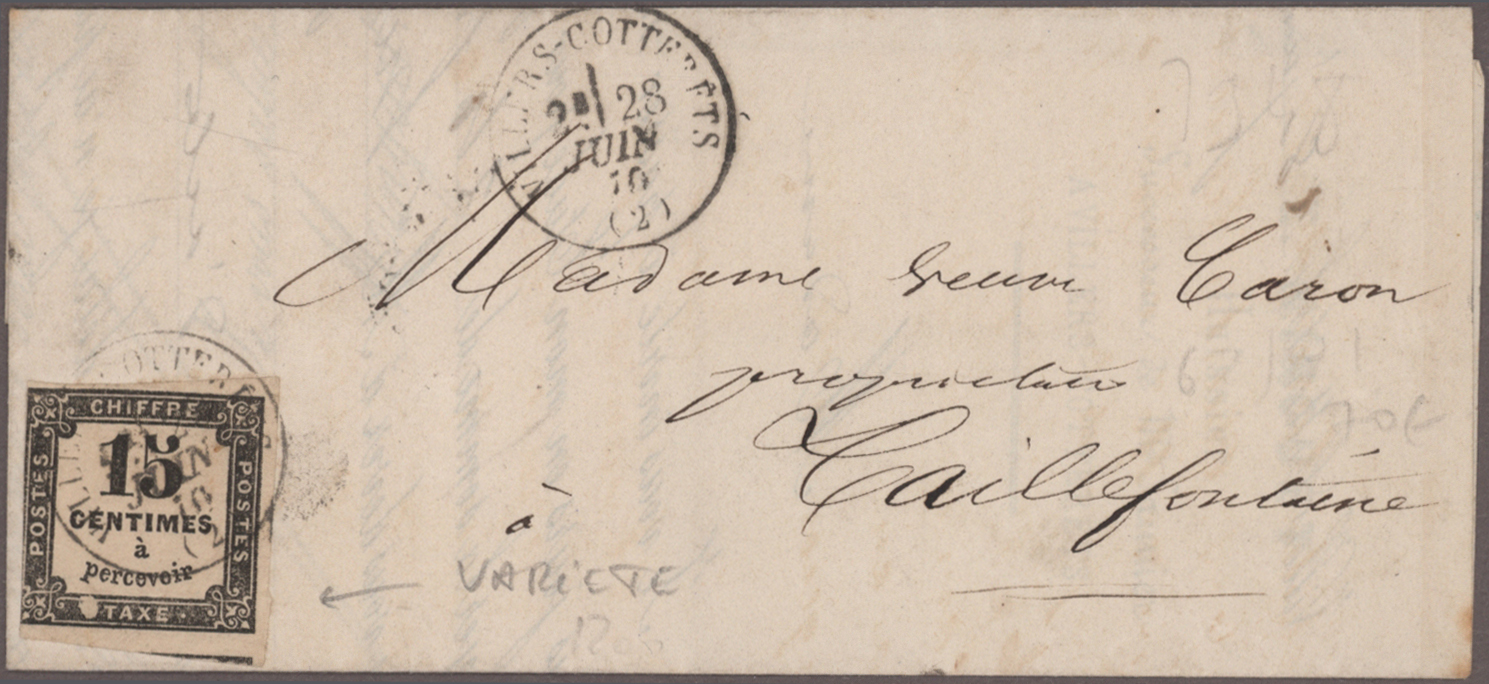 VILLERS-COTTERÊTS
2E 28
JUIN
70
(2)
Madame veuve Caron
propriétaire
à Taillefontaine
COTTERETS
CHIFFRE
15
CENTIMES
à
percevoir
TAXE
POSTES
POSTES
JUIN
70
(2)
← VARIETE
70€